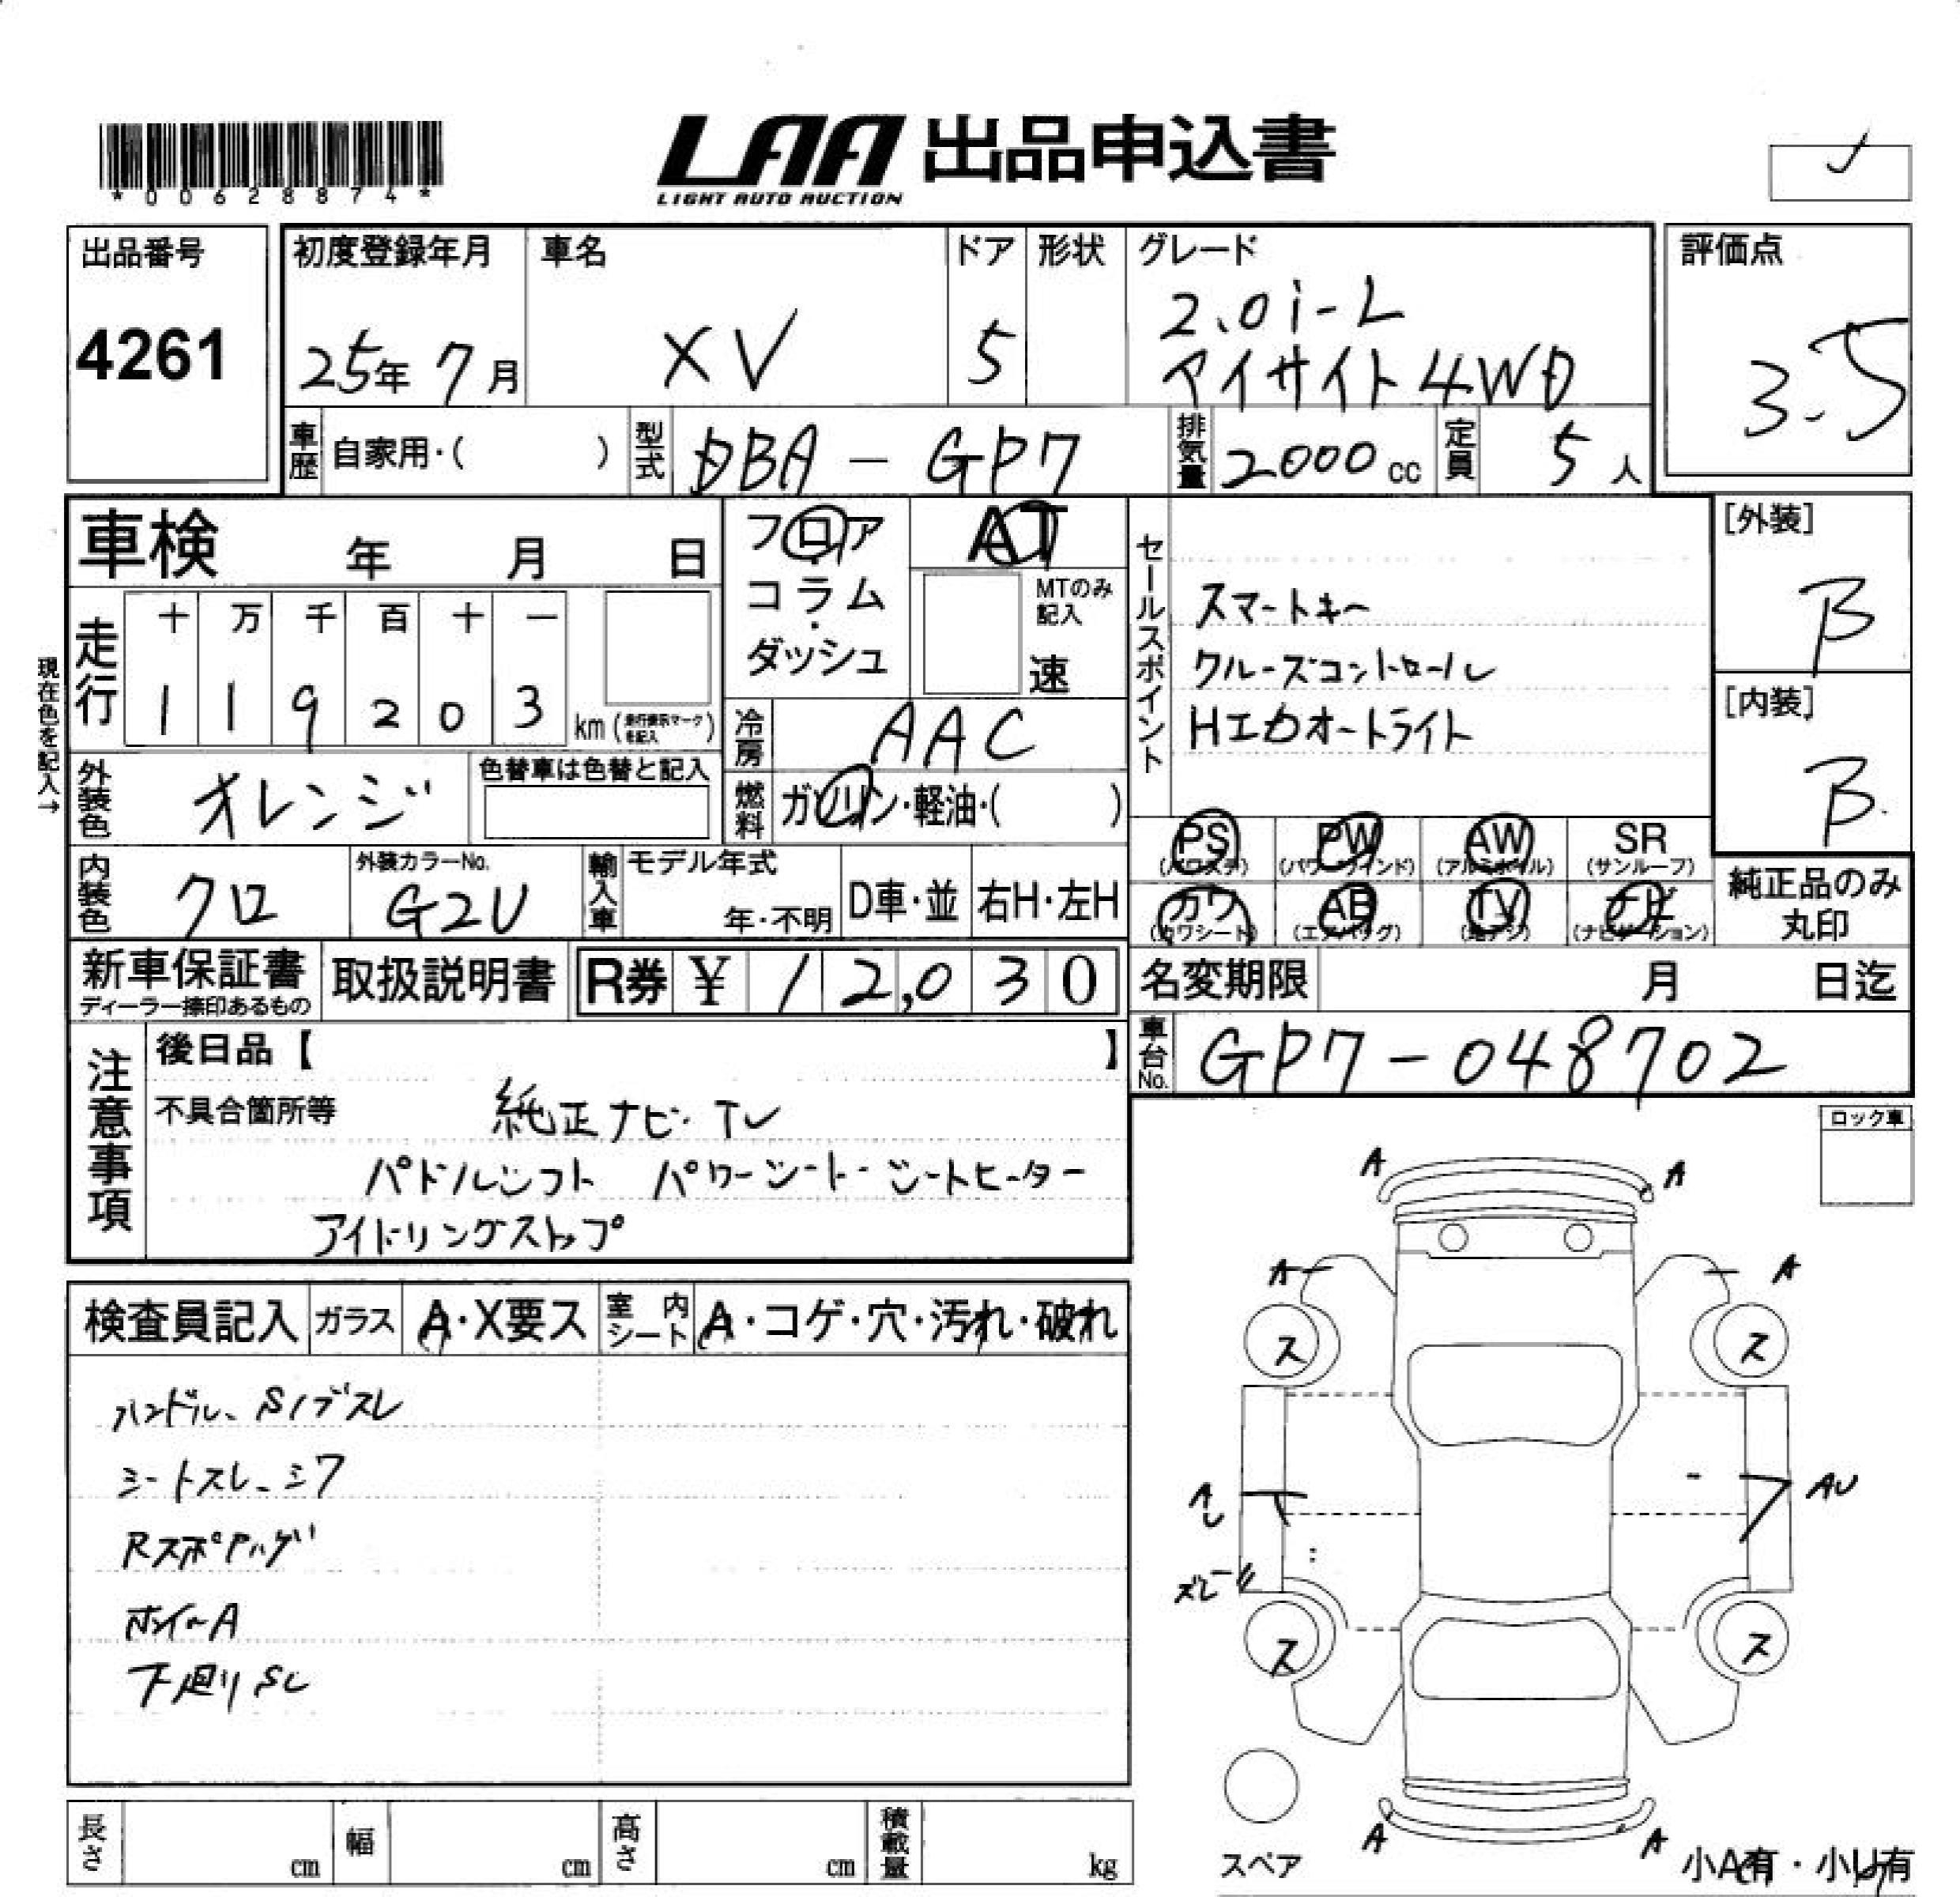 *00628874*
LAA 出品申込書
LIGHT AUTO AUCTION
出品番号
4261
初度登録年月
25年 7月
車名
XV
ドア
5
形状
グレード
2.0i-L
アイサイト4WD
評価点
3.5
車歴 自家用・( )
型式 DBA-GP7
排気量 2000cc
定員 5人
車検 年 月 日
走行
十 万 千 百 十 一
1 1 9 2 0 3 km (走行表示マークを記入)
現在色を記入→
フロア
・
コラム
・
ダッシュ
AT
MTのみ
記入
速
冷房 AAC
燃料 ガソリン・軽油・( )
セールスポイント
スマートキー
クルーズコントロール
HIDオートライト
[外装]
B
[内装]
B
外装色 オレンジ
色替車は色替と記入
内装色 クロ
外装カラーNo.
G2U
輸入車
モデル年式
年・不明
D車・並
右H・左H
PS
(パワステ)
PW
(パワーウインド)
AW
(アルミホイル)
SR
(サンルーフ)
カワ
(カワシート)
AB
(エアバッグ)
TV
(地デジ)
ナビ
(ナビゲーション)
純正品のみ
丸印
新車保証書
ディーラー捺印あるもの
取扱説明書
R券 ¥ 12,030
名変期限 月 日迄
車台No. GP7-048702
注意事項
後日品【 】
不具合箇所等
純正ナビ・TV
パドルシフト パワーシート・シートヒーター
アイドリングストップ
ロック車
検査員記入
ガラス A・X要ス
室内シート A・コゲ・穴・汚れ・破れ
ハンドル、Sノブスレ
シートスレ、シワ
Rスポイラハゲ
ホイールA
下廻りSC
A A
A A
ス ス
AU
ズレ
ス ス
A A
スペア
小A有・小U有
長さ cm
幅 cm
高さ cm
積載量 kg